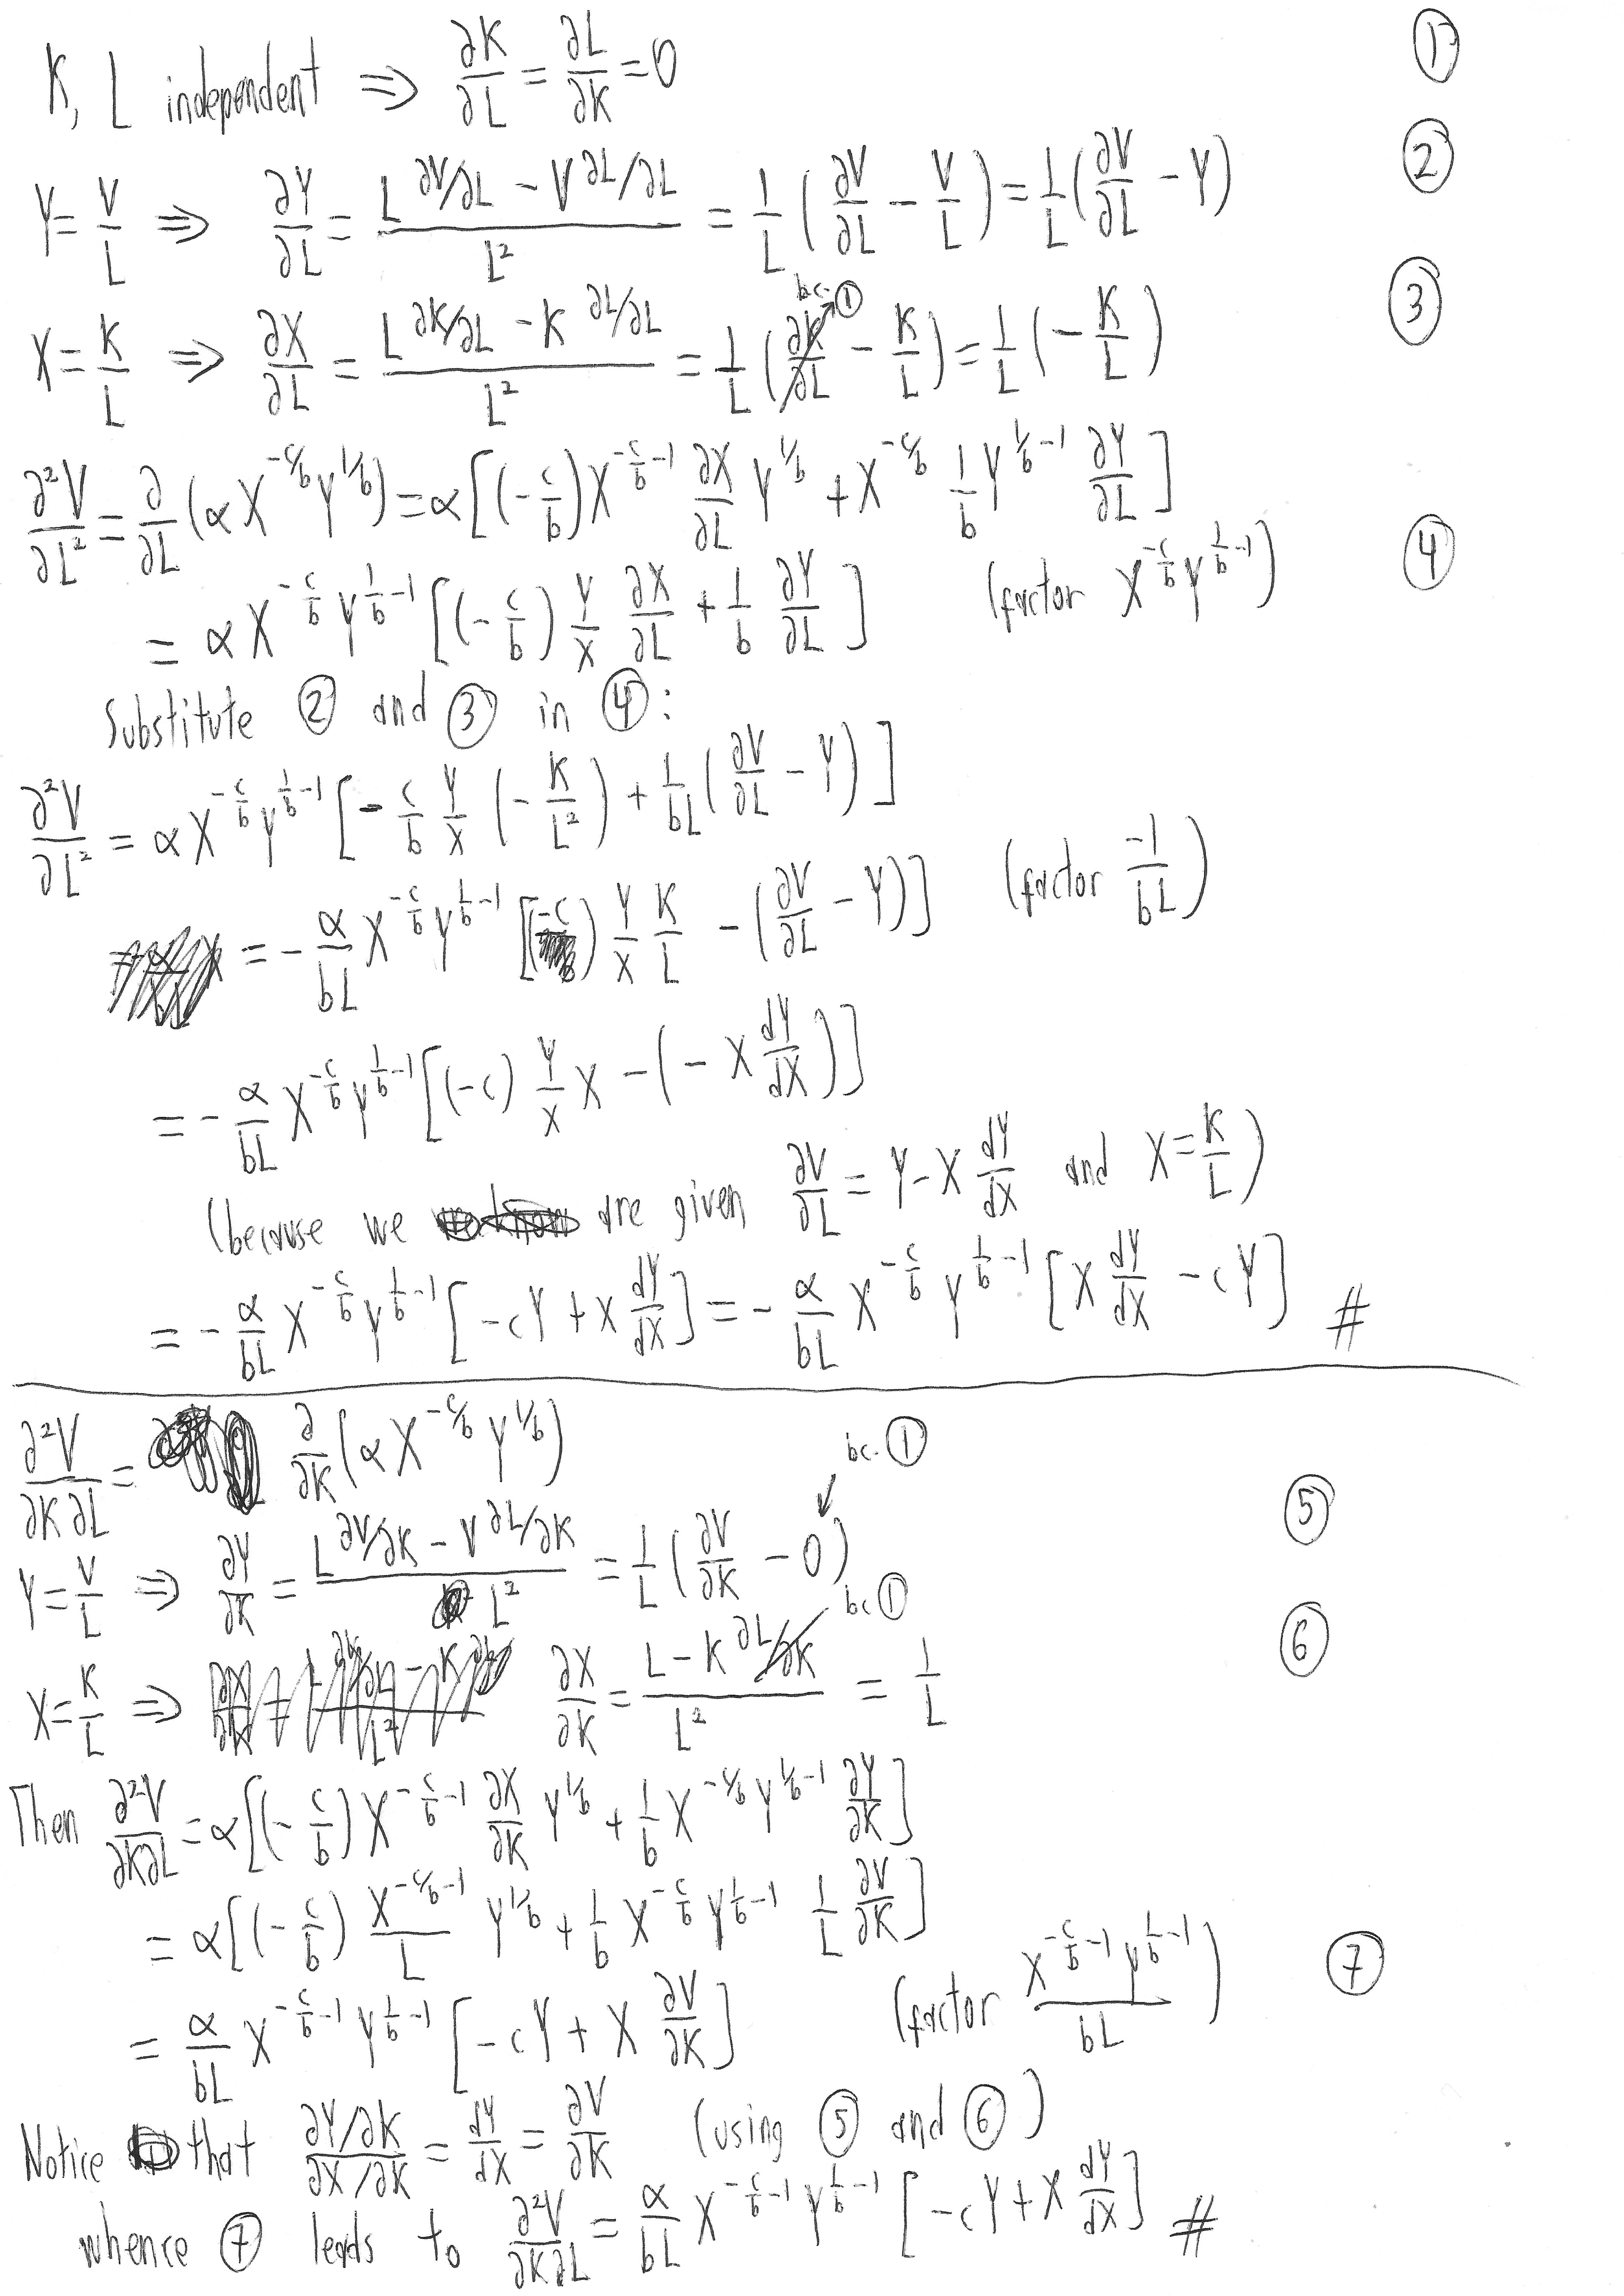 K, L independent ⇒ ∂K/∂L = ∂L/∂K = 0 ①
Y = V/L ⇒ ∂Y/∂L = (L ∂V/∂L − V ∂L/∂L)/L² = 1/L (∂V/∂L − V/L) = 1/L (∂V/∂L − Y) ②
bc. ①
X = K/L ⇒ ∂X/∂L = (L ∂K/∂L − K ∂L/∂L)/L² = 1/L (∂K/∂L − K/L) = 1/L (−K/L) ③
∂²V/∂L² = ∂/∂L (αX^(−c/b) Y^(1/b)) = α[(−c/b)X^(−c/b−1) ∂X/∂L Y^(1/b) + X^(−c/b) 1/b Y^(1/b−1) ∂Y/∂L]
= αX^(−c/b) Y^(1/b−1) [(−c/b) Y/X ∂X/∂L + 1/b ∂Y/∂L] (factor X^(−c/b) Y^(1/b−1)) ④
Substitute ② and ③ in ④:
∂²V/∂L² = αX^(−c/b) Y^(1/b−1) [−c/b Y/X (−K/L²) + 1/bL (∂V/∂L − Y)]
= −α/bL X^(−c/b) Y^(1/b−1) [(−c) Y/X K/L − (∂V/∂L − Y)] (factor −1/bL)
= −α/bL X^(−c/b) Y^(1/b−1) [(−c) Y/X X − (−X dY/dX)]
(because we are given ∂V/∂L = Y − X dY/dX and X = K/L)
= −α/bL X^(−c/b) Y^(1/b−1) [−cY + X dY/dX] = −α/bL X^(−c/b) Y^(1/b−1) [X dY/dX − cY] #
∂²V/∂K∂L = ∂/∂K (αX^(−c/b) Y^(1/b))
bc. ①
Y = V/L ⇒ ∂Y/∂K = (L ∂V/∂K − V ∂L/∂K)/L² = 1/L (∂V/∂K − 0) ⑤
bc ①
X = K/L ⇒ ∂X/∂K = (L − K ∂L/∂K)/L² = 1/L ⑥
Then ∂²V/∂K∂L = α[(−c/b)X^(−c/b−1) ∂X/∂K Y^(1/b) + 1/b X^(−c/b) Y^(1/b−1) ∂Y/∂K]
= α[(−c/b) X^(−c/b−1)/L Y^(1/b) + 1/b X^(−c/b) Y^(1/b−1) 1/L ∂V/∂K]
= α/bL X^(−c/b−1) Y^(1/b−1) [−cY + X ∂V/∂K] (factor X^(−c/b−1) Y^(1/b−1)/bL) ⑦
Notice that (∂Y/∂K)/(∂X/∂K) = dY/dX = ∂V/∂K (using ⑤ and ⑥)
whence ⑦ leads to ∂²V/∂K∂L = α/bL X^(−c/b−1) Y^(1/b−1) [−cY + X dY/dX] #